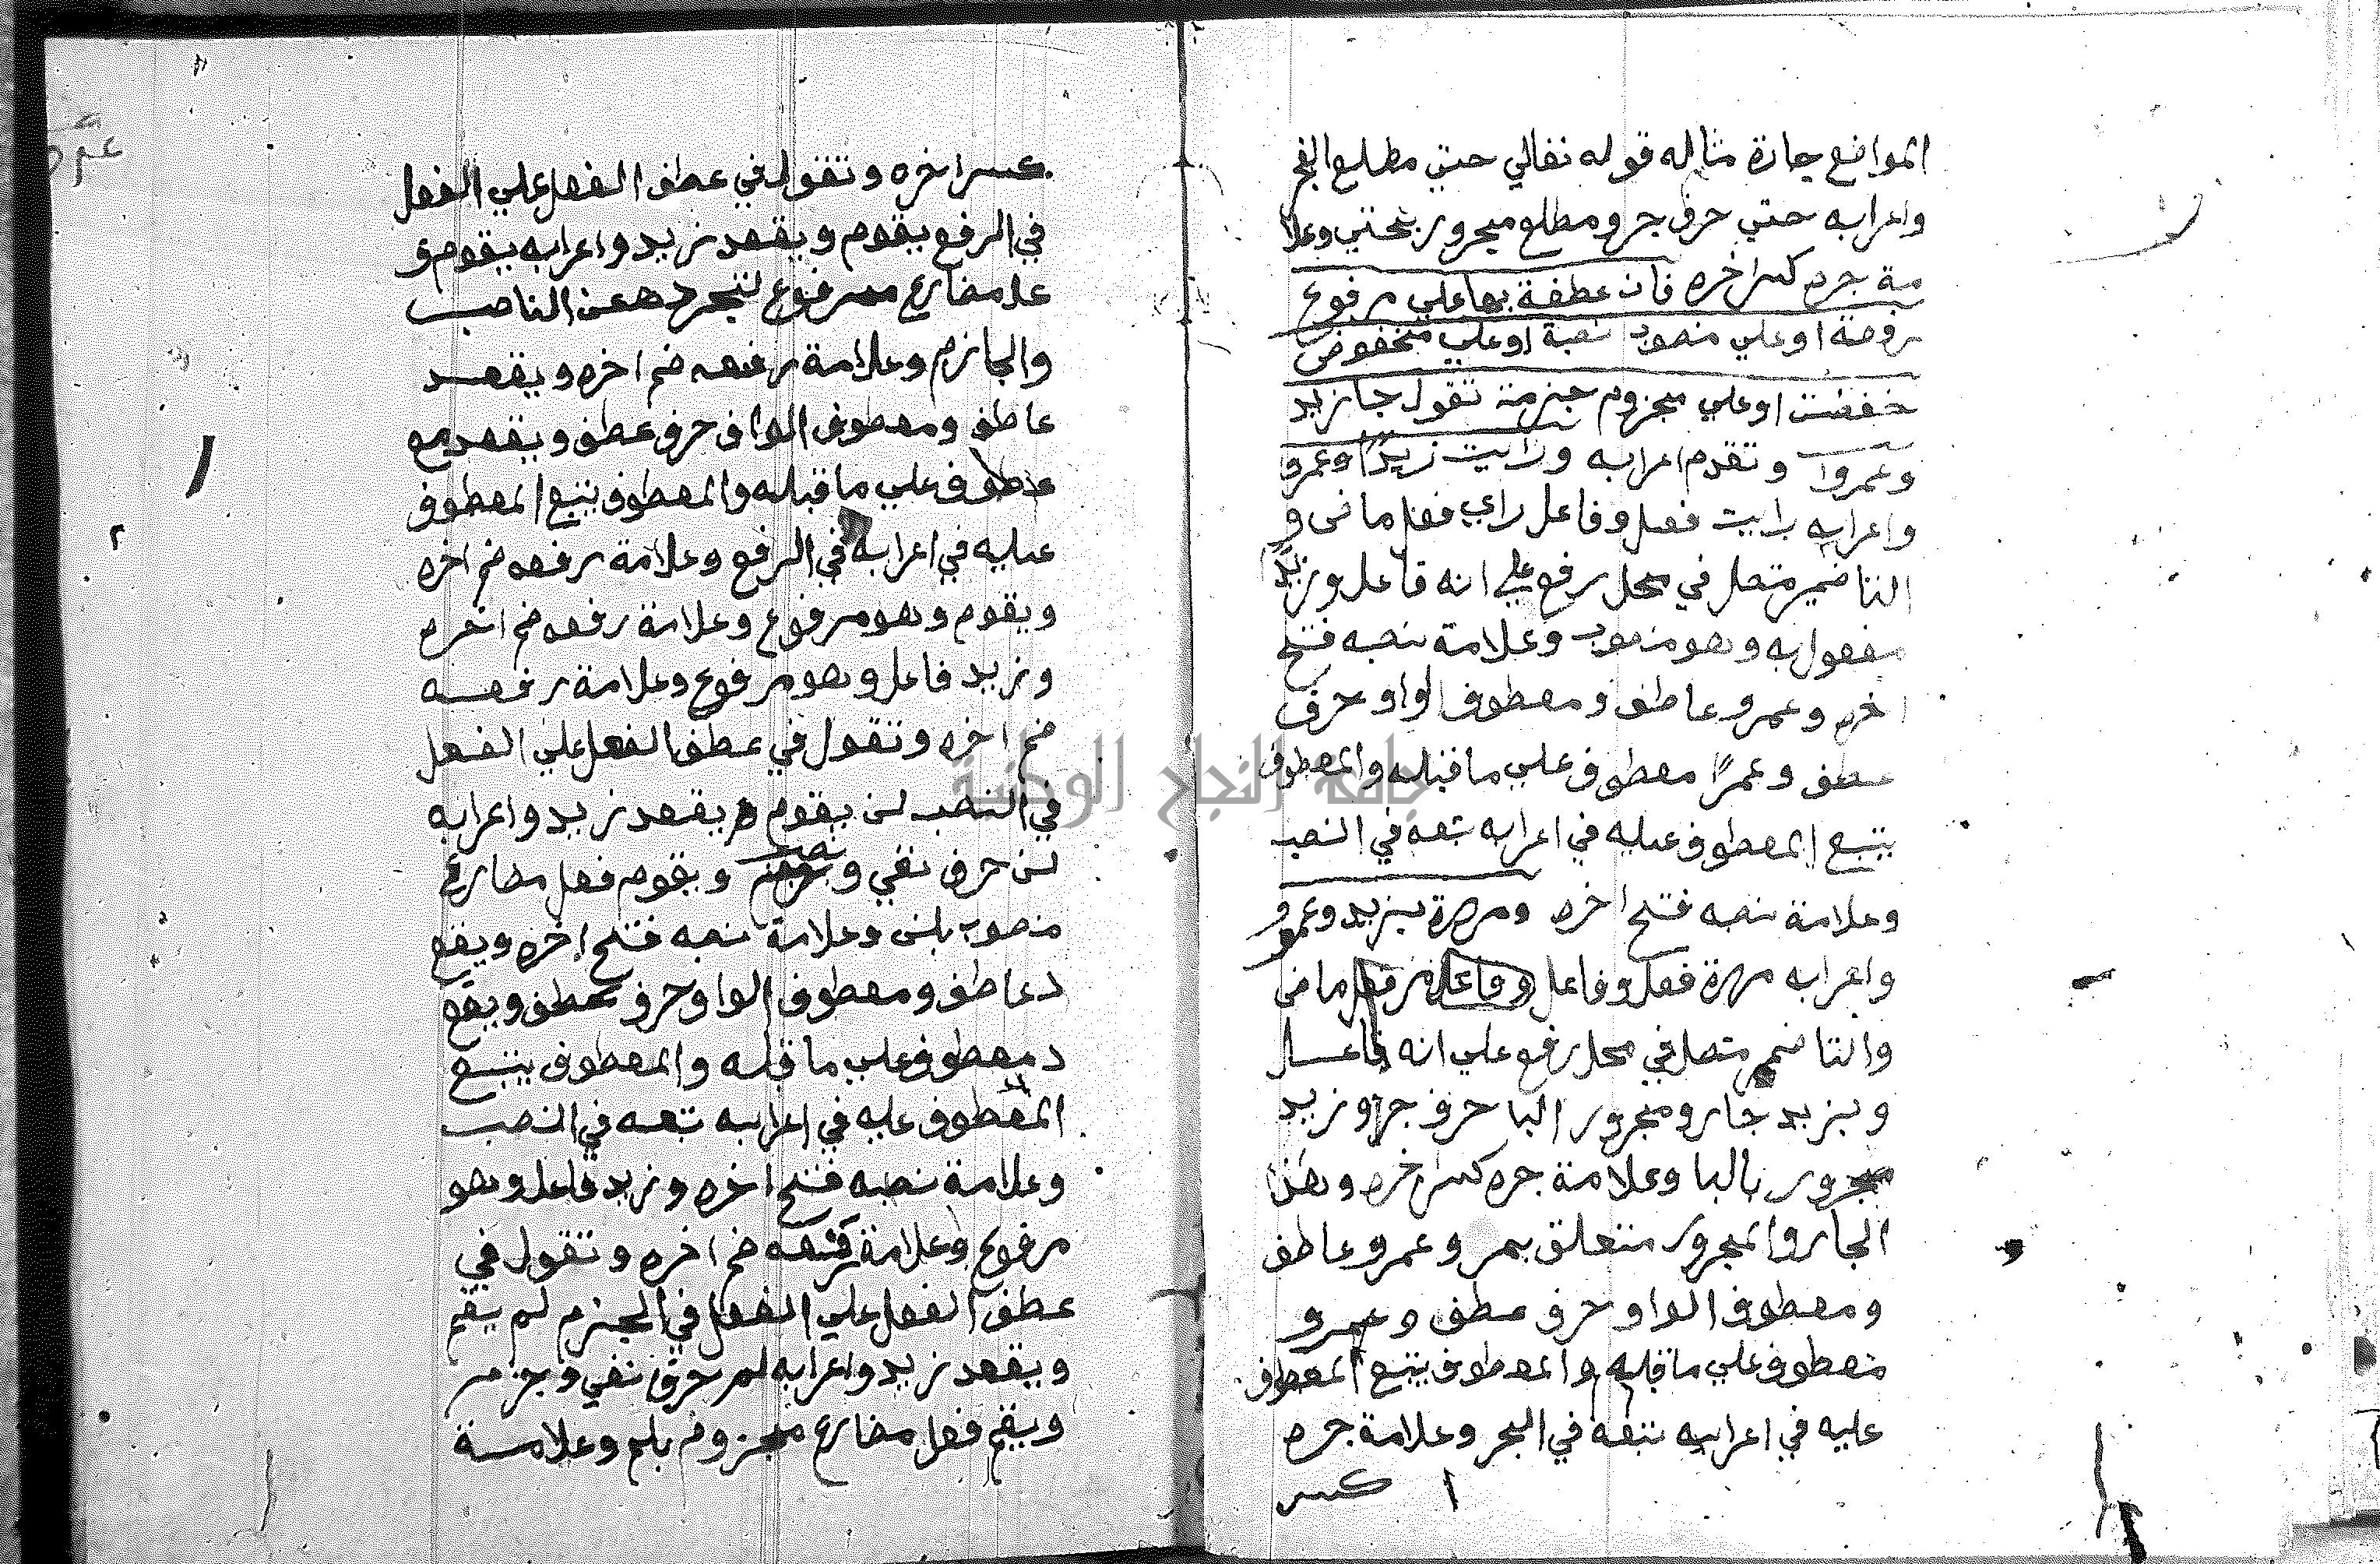 المواضع جارة مثاله قوله تعالي حتي مطلع الفجر
واعرابه حتي حرف جر ومطلع مجرور بحتي وعلا
مة جره كسر اخره فان عطفة بها علي مرفوع
رفعة او علي منصوب نصبة او علي مخفوض
خفضت او علي مجزوم جزمة تقول جا زيد
وعمروا وتقدم اعرابه ورايت زيدًا وعمرو
واعرابه رايت فعل وفاعل راي فعل ماضى و
التا ضمير متصل في محل رفع علي انه فاعل وزيدًا
مفعول به وهو منصوب وعلامة نصبه فتح
اخره وعمرو عاطف ومعطوف الواو حرف
عطف وعمرًا معطوف علي ما قبله والمعطوف
يتبع المعطوف عليه في اعرابه تبعه في النصب
وعلامة نصبه فتح اخره ومررة بزيد وعمرو
واعرابه مررة فعل وفاعل وفاعل مر فعل ماضى
والتا ضمير متصل في محل رفع علي انه فاعل
وبزيد جار ومجرور البا حرف جر وزيد
مجرور بالبا وعلامة جره كسر اخره وهذا
الجار والمجرور متعلق بمر وعمرو عاطف
ومعطوف الواو حرف عطف وعمرو
معطوف علي ما قبله والمعطوف يتبع المعطوف
عليه في اعرابه تبعه في الجر وعلامة جره
كسر ا
كسر اخره وتقول في عطف الفعل علي الفعل
في الرفع يقوم ويقعد زيد واعرابه يقوم ف
عل مضارع مرفوع لتجرده عن الناصب
والجازم وعلامة رفعه ضم اخره ويقعد
عاطف ومعطوف الواو حرف عطف ويقعد مع
عطوف علي ما قبله والمعطوف يتبع المعطوف
عليه في اعرابه في الرفع وعلامة رفعه ضم اخره
ويقوم وهو مرفوع وعلامة رفعه ضم اخره
وزيد فاعل وهو مرفوع وعلامة رفعه
ضم اخره وتقول في عطف الفعل علي الفعل
في النصب لن يقوم ويقعد زيد واعرابه
لن حرف نفي ونصب ويقوم فعل مضارع
منصوب بلن وعلامة نصبه فتح اخره ويقع
د عاطف ومعطوف الواو حرف عطف ويقع
د معطوف علي ما قبله والمعطوف يتبع
المعطوف عليه في اعرابه تبعه في النصب
وعلامة نصبه فتح اخره وزيد فاعل وهو
مرفوع وعلامة رفعه ضم اخره وتقول في
عطف الفعل علي الفعل في الجزم لم يقم
ويقعد زيد واعرابه لم حرف نفي وجزم
ويقم فعل مضارع مجزوم بلم وعلامة
جامعة النجاح الوطنية